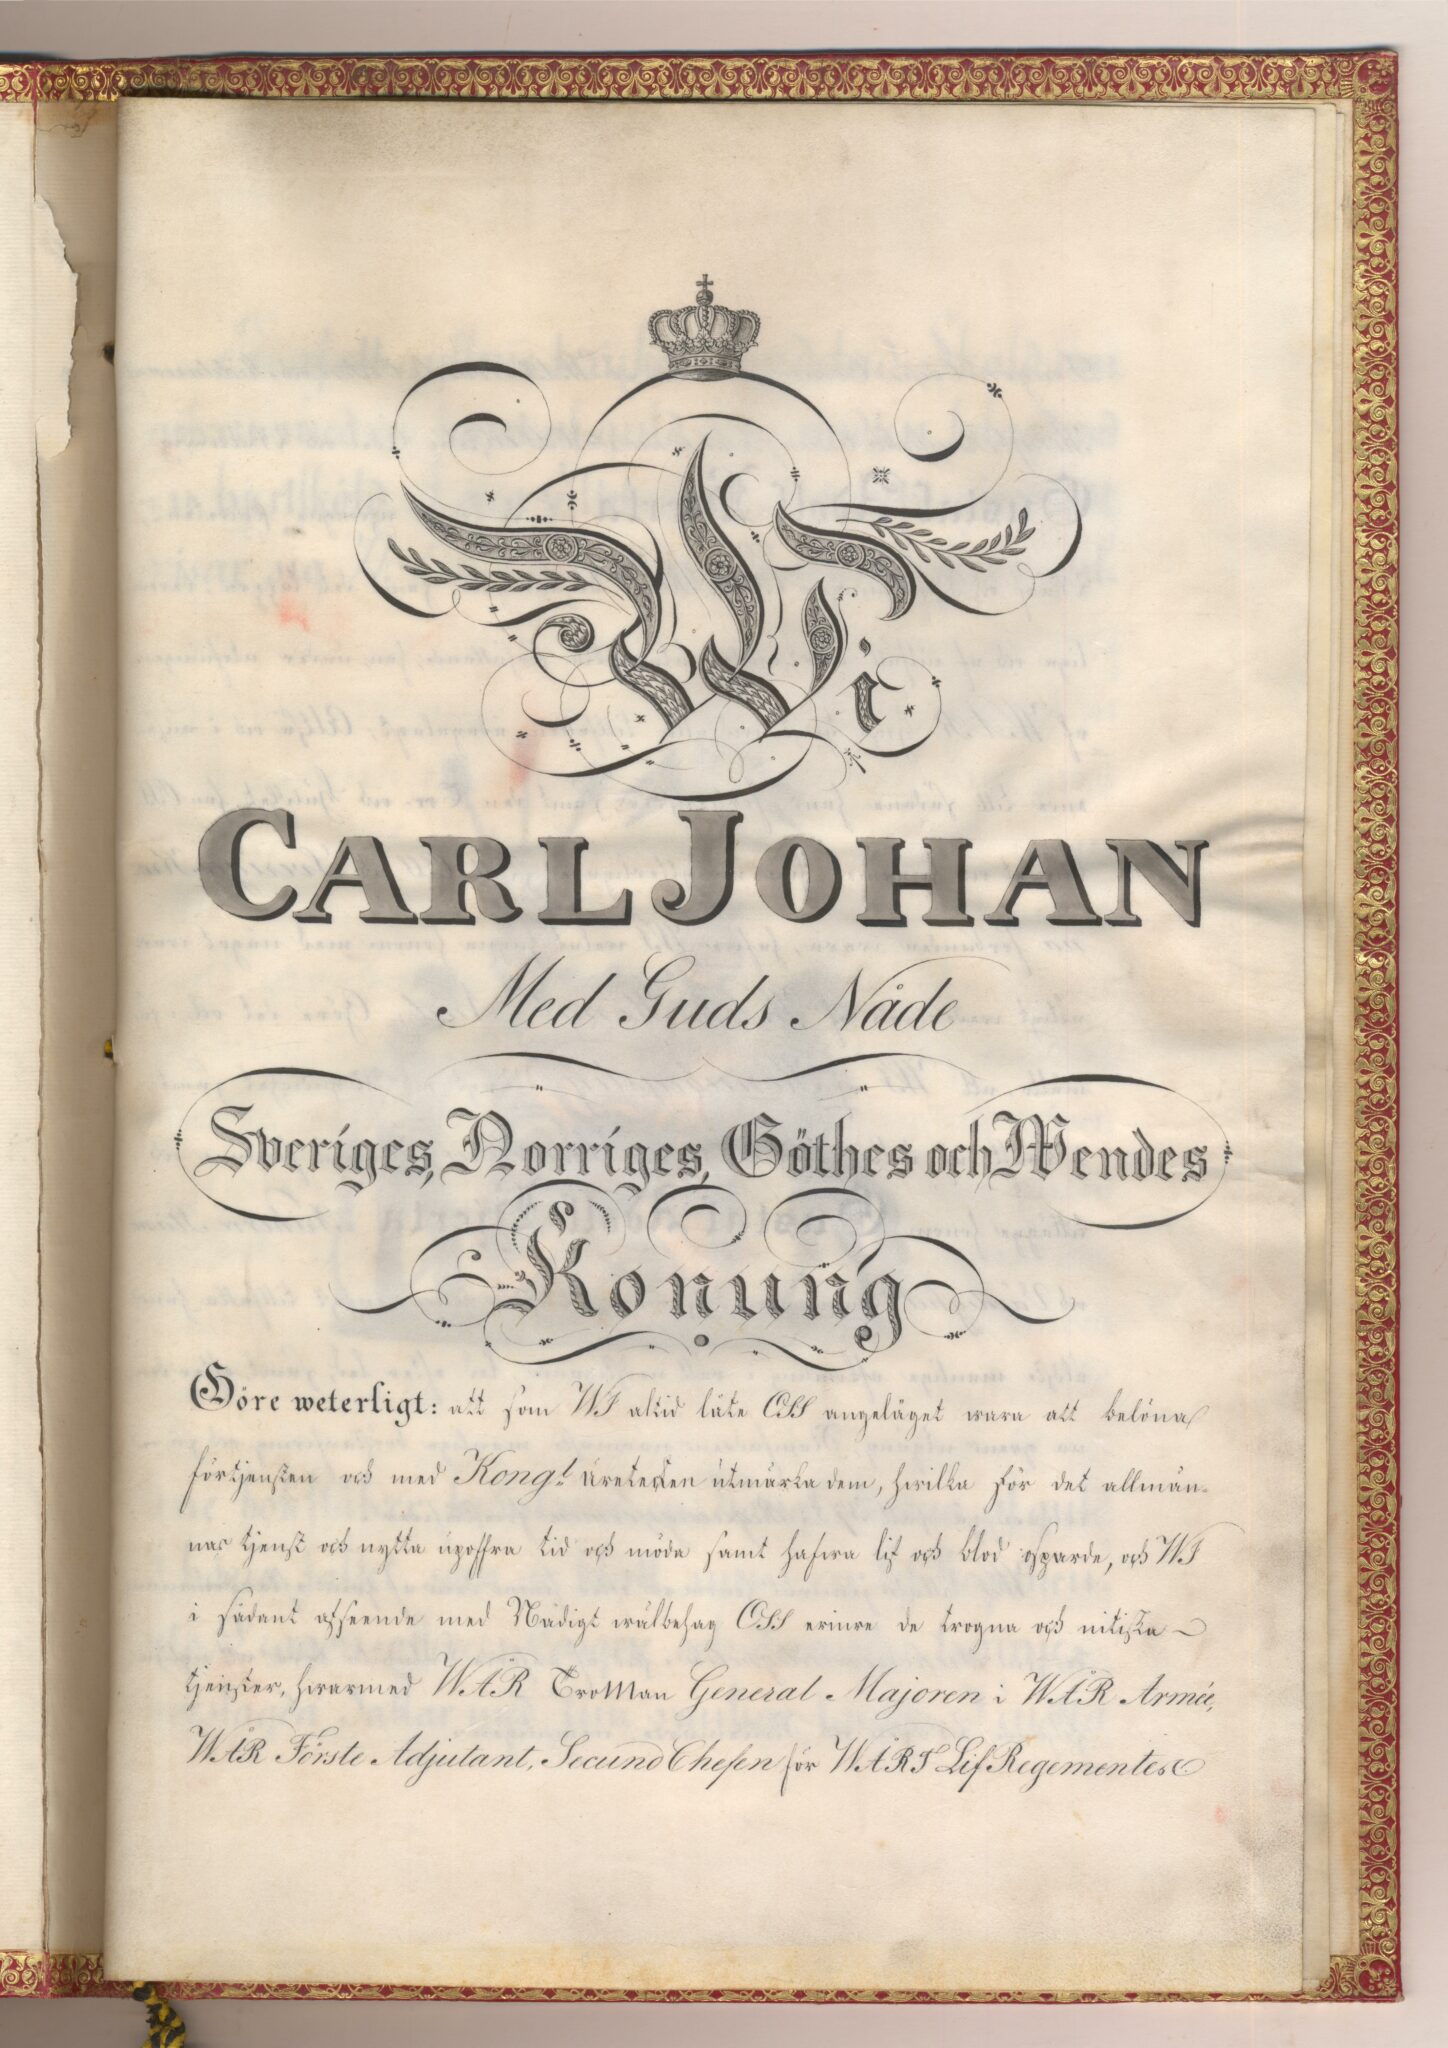 Wi
CARL JOHAN
Med Guds Nåde
Sveriges, Norriges, Göthes och Wendes
Konung
Göre weterligt: att som WI altid låte OSS angeläget wara att belöna
förtjensten och med Kongl. äretecken utmärka dem, hwilka för det allmän-
nas tjenst och nytta upoffra tid och möda samt hafwa lif och blod osparde, och WI
i sådant afseende med Nådigt wälbehag OSS erinre de trogna och nitiska
tjenster, hwarmed WÅR TroMan General Majoren i WÅR Armée,
WÅR Förste Adjutant, Secund Chefen för WÅRT Lif Regementes